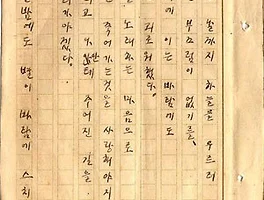 날까지 하늘을 우르러
부끄럼이 없기를,
에 이는 바람에도
괴로워했다.
노래하는 마음으로
죽어가는것을 사랑해야지
고 나안테 주어진 길을
러가야겠다.
밤에도 별이 바람에 스치